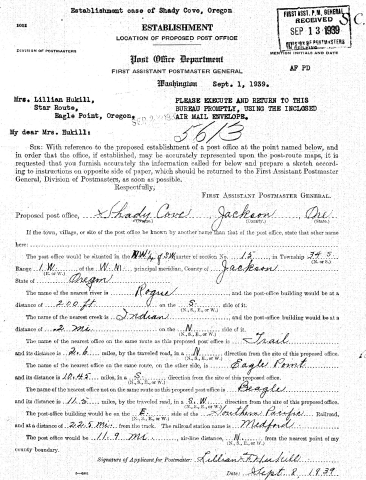 Establishment case of Shady Cove, Oregon
S.C.
1022
ESTABLISHMENT
LOCATION OF PROPOSED POST OFFICE
FIRST ASST. P.M. GENERAL
RECEIVED
SEP 13 1939
DIVISION OF POSTMASTERS
DIVISION OF POSTMASTERS
MENTION INITIALS AND DATE
Post Office Department
FIRST ASSISTANT POSTMASTER GENERAL
AF PD
Washington Sept. 1, 1939.
Mrs. Lillian Hukill,
Star Route,
Eagle Point, Oregon.
PLEASE EXECUTE AND RETURN TO THIS
BUREAU PROMPTLY, USING THE INCLOSED
AIR MAIL ENVELOPE.
My dear Mrs. Hukill:
5613
SIR: With reference to the proposed establishment of a post office at the point named below, and
in order that the office, if established, may be accurately represented upon the post-route maps, it is
requested that you furnish accurately the information called for below and prepare a sketch according
to instructions on opposite side of paper, which should be returned to the First Assistant Postmaster
General, Division of Postmasters, as soon as possible.
Respectfully,
FIRST ASSISTANT POSTMASTER GENERAL.
Proposed post office, Shady Cove, Jackson Ore
(County) (State)
If the town, village, or site of the post office be known by another name than that of the post office, state that other name
here:
The post office would be situated in the NW¼ of SW quarter of section No. 15, in Township 34 S
(N. or S.)
Range 1 W. of the W. M. principal meridian, County of Jackson
(E. or W.)
State of Oregon
The name of the nearest river is Rogue, and the post-office building would be at a
distance of 200 ft on the S. side of it.
(N., S., E., or W.)
The name of the nearest creek is Indian, and the post-office building would be at a
distance of 2 mi on the N. side of it.
(N., S., E., or W.)
The name of the nearest office on the same route as this proposed post office is Trail
and its distance is 2.6 miles, by the traveled road, in a N. direction from the site of this proposed office.
(N., S., E., or W.)
The name of the nearest office on the same route, on the other side, is Eagle Point
and its distance is 10.45 miles, in a S. direction from the site of this proposed office.
(N., S., E., or W.)
The name of the nearest office not on the same route as this proposed post office is Beagle
and its distance is 11.5 miles, by the traveled road, in a S.W. direction from the site of this proposed office.
(N., S., E., or W.)
The post-office building would be on the E. side of the Southern Pacific Railroad,
(N., S., E., or W.)
and at a distance of 22.5 mi. from the track. The railroad station name is Medford
The post office would be 11.9 mi., air-line distance, N. from the nearest point of my
(N., S., E., or W.)
county boundary.
Signature of Applicant for Postmaster: Lillian F. Hukill
Date: Sept. 8, 1939